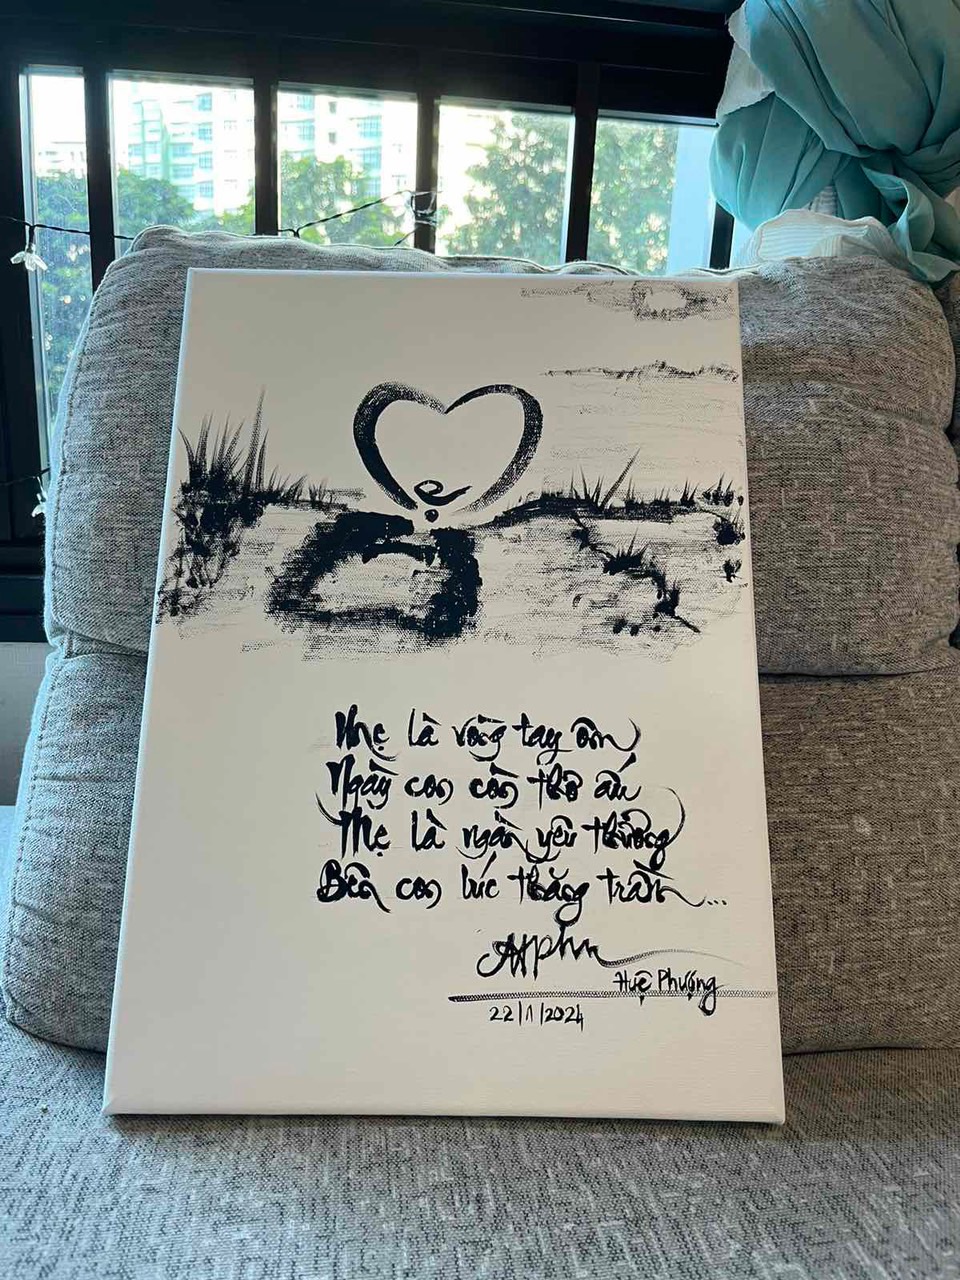 Mẹ là vòng tay ôm
Ngày con còn thơ ấu
Mẹ là ngàn yêu thương
Bên con lúc thăng trầm...
Huệ Phượng
22/1/2024